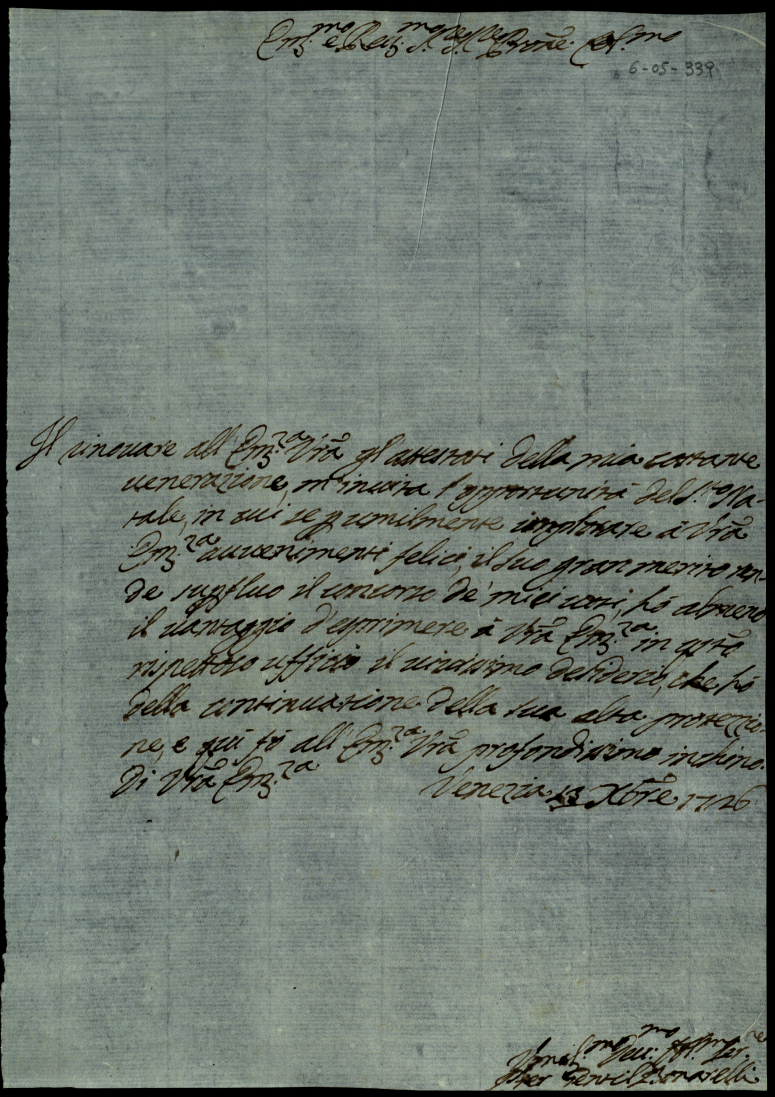 Em:mo e Reu:mo Sig:re Sig:re Prone Col:mo
6-05-339
Il rinouare all' Em:za Vrã gl'attestati della mia costante
uenerazione, m'inuita l'opportunità del S.to Na-
tale, in cui se humilmente imploraré à Vrã
Em:za auuenimenti felici, il suo gran merito ren-
de supfluo il concorso de' miei uoti, hò almeno
il uantaggio d'esprimere à Vrã Em:za in qsto
rispettoso ufficio il uiuissimo desiderio, che hò
della continuatione della sua alta protezzio-
ne, e quì fò all' Em:za Vrã profondissimo inchino.
Di Vrã Em:za Venezia 13 Xbre 1726
Humil:mo Deu: Obl:mo Ser:re
Pier Gentil Bonarelli